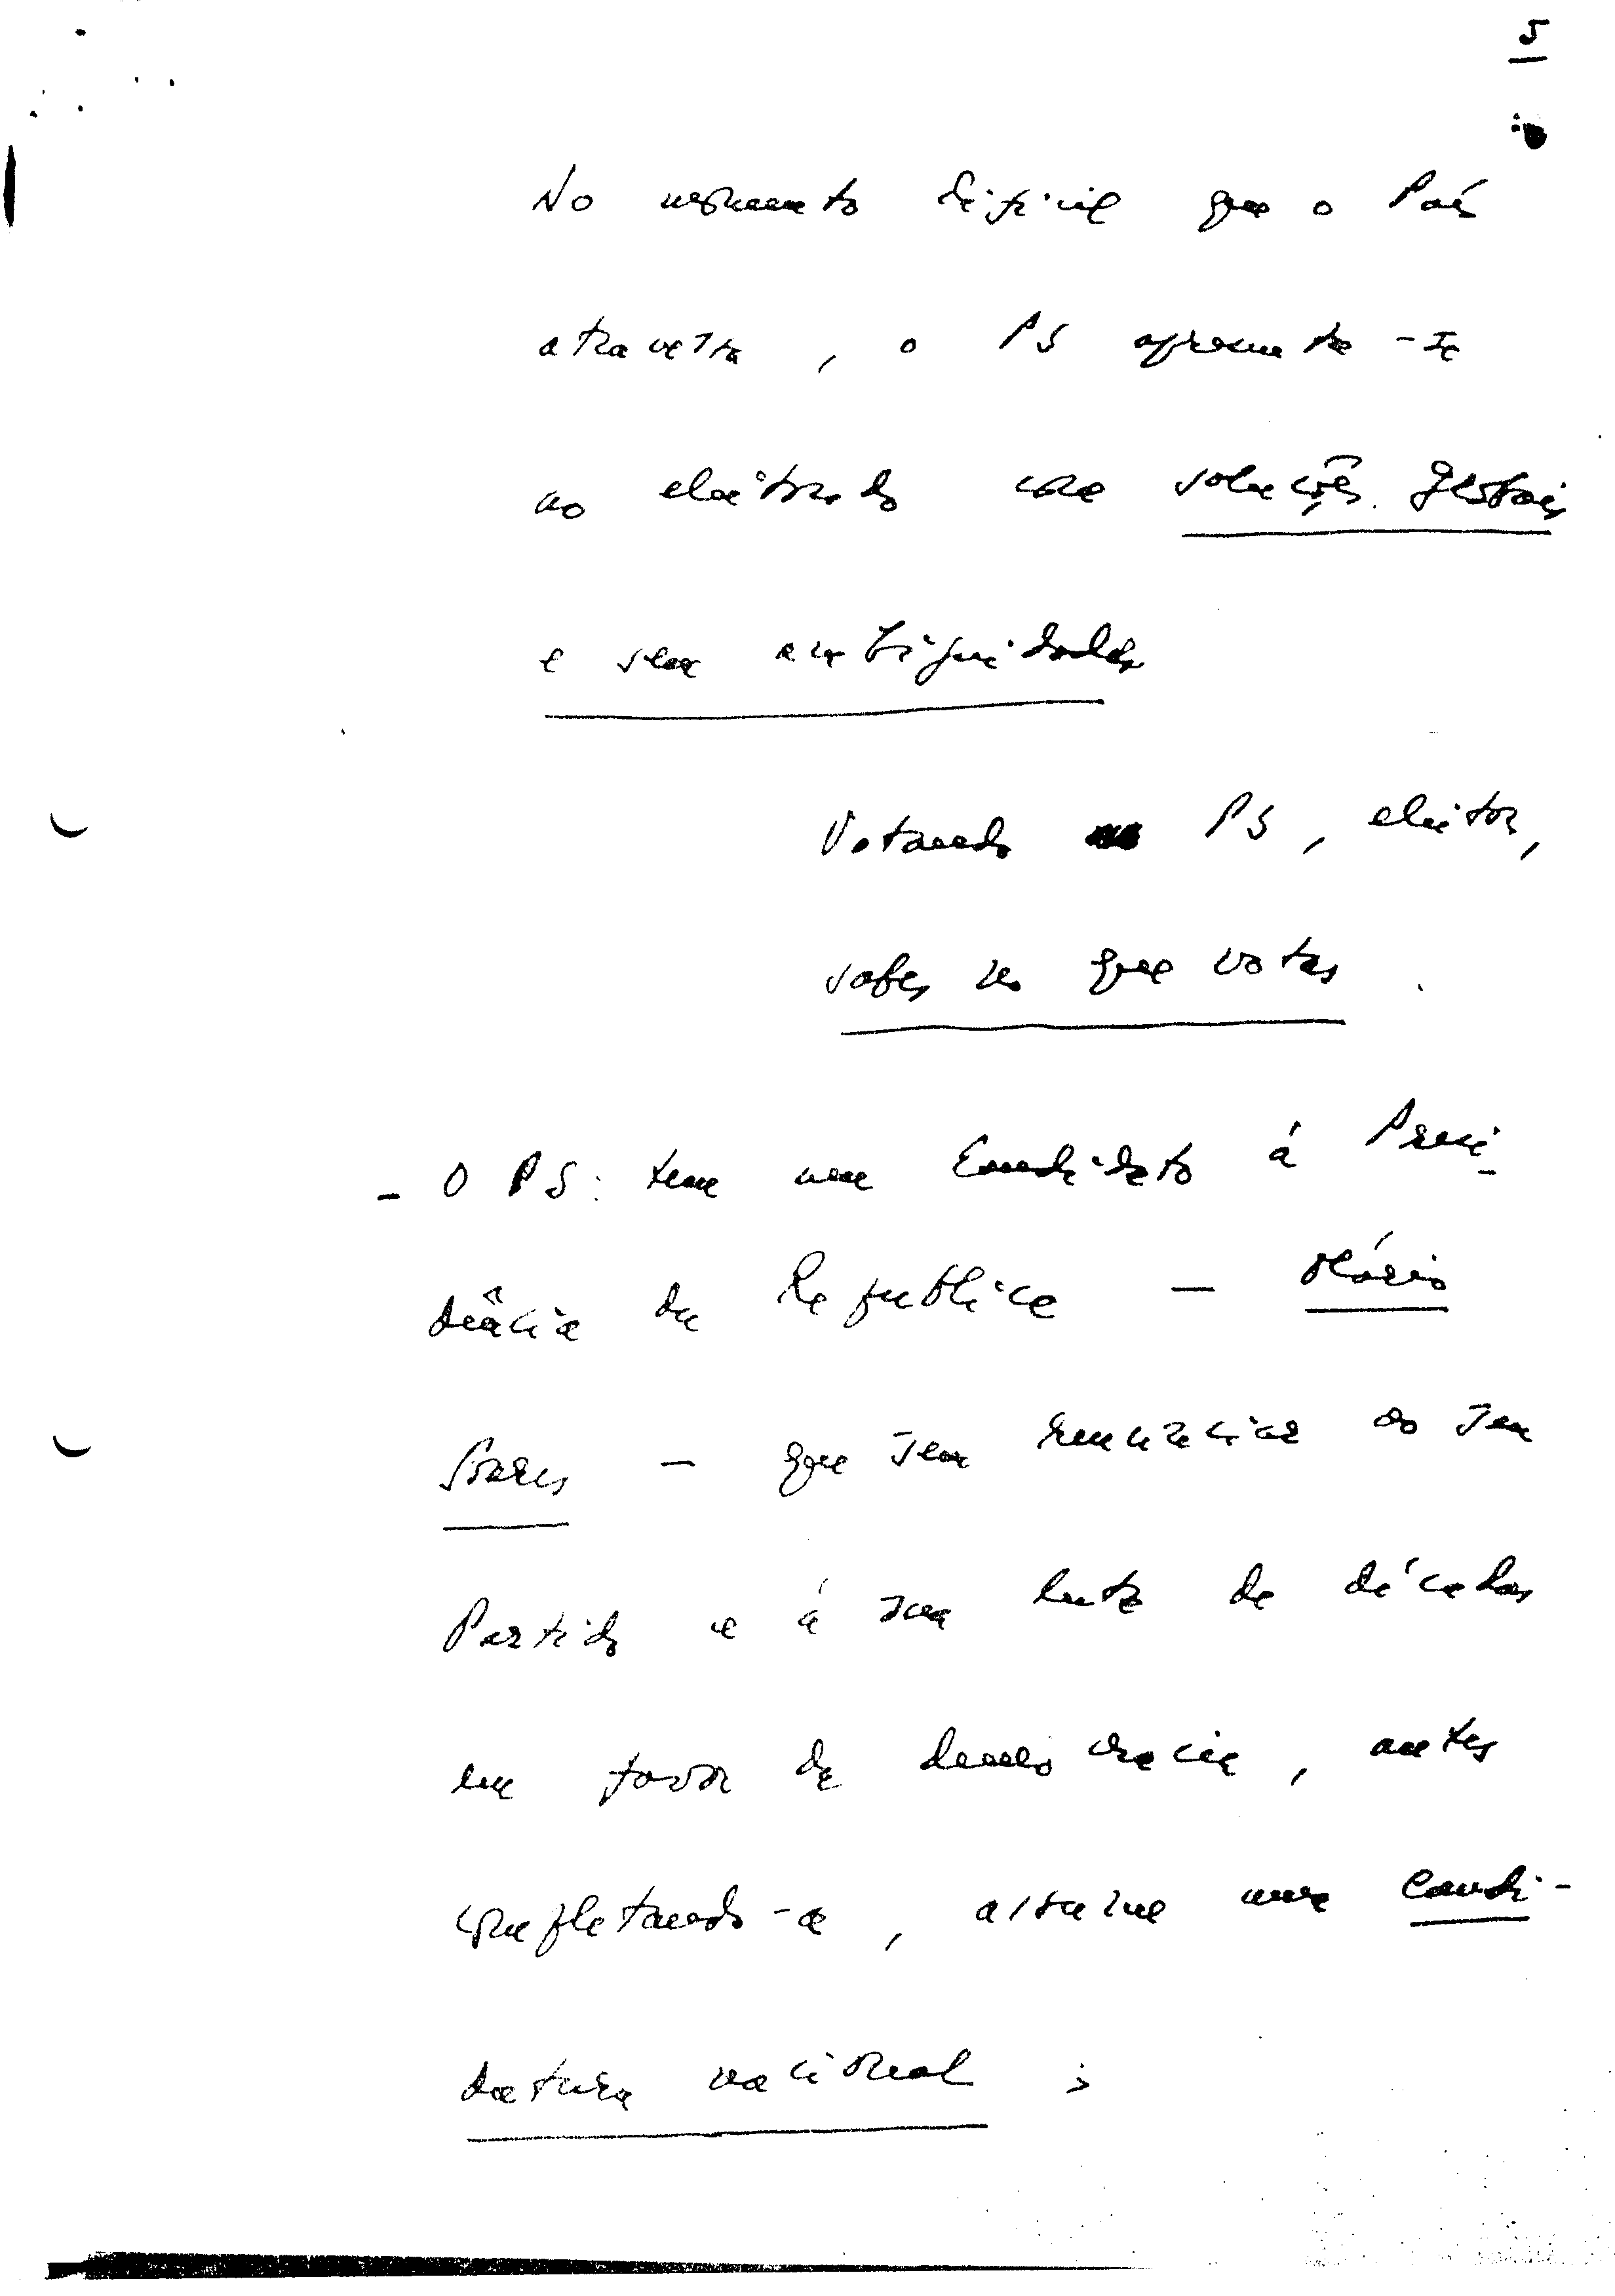 5
No momento difícil que o País
atravessa, o PS apresenta-se
ao eleitorado com soluções globais
e sem ambiguidades
Votando PS, eleitor,
sabes no que votas.
- O PS tem um Candidato á Presi-
dência da Republica - Mário
Soares - que sem renunciar ao seu
Partido e á sua luta de décadas
em favor da democracia, antes
completando-a, assume uma candi-
datura nacional;